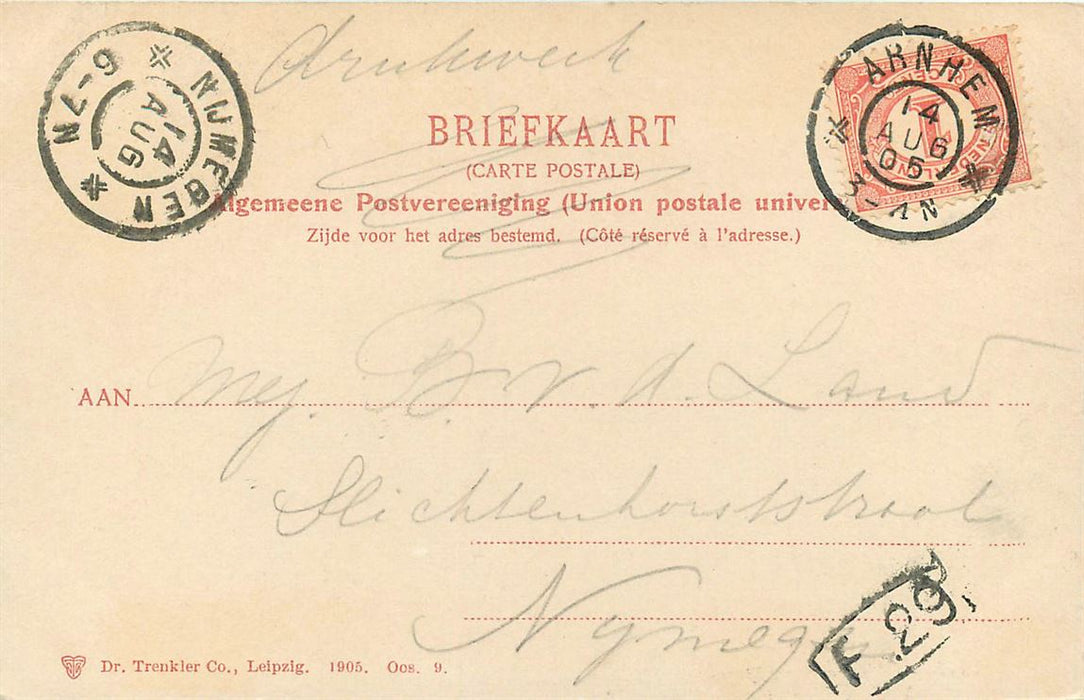 drukwerk
BRIEFKAART
(CARTE POSTALE)
Algemeene Postvereeniging (Union postale univer
Zijde voor het adres bestemd. (Côté réservé à l'adresse.)
NIJMEGEN
14
AUG
6-7N
ARNHEM
14
AUG
05
3-4N
1
AAN Mej. B. v. d. Land
Slichtenhorststraat
Nymegen
F 29
Dr. Trenkler Co., Leipzig. 1905. Oos. 9.